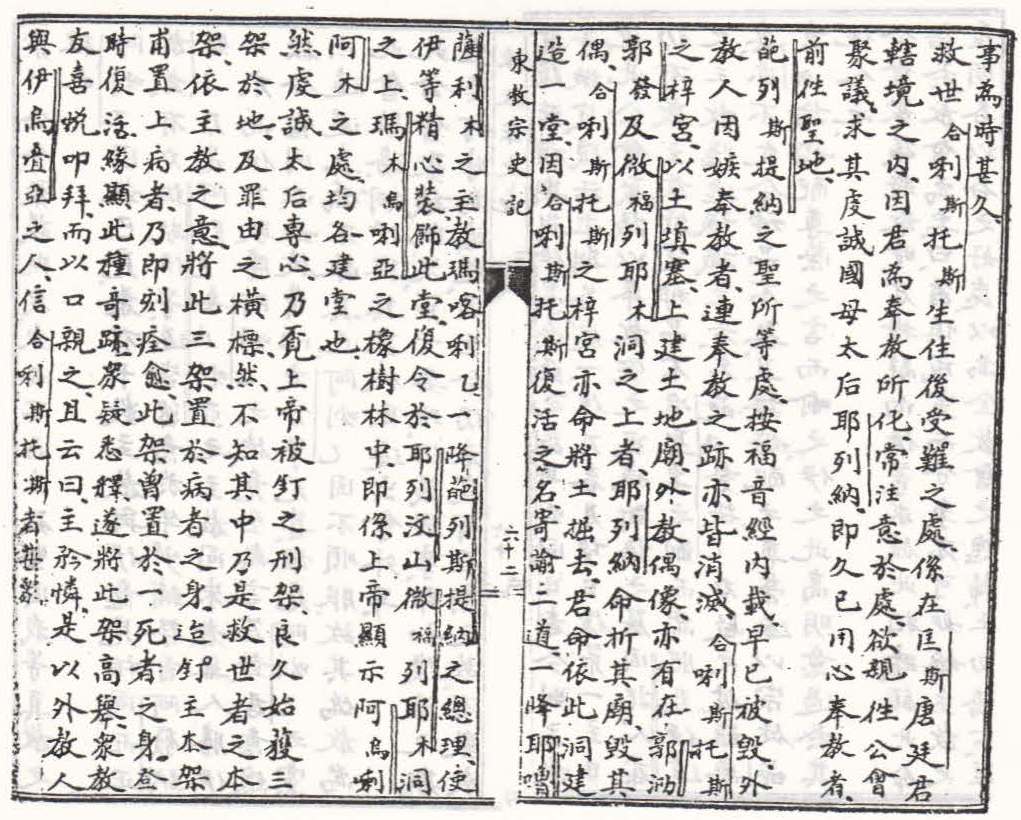 事爲時甚久、
救世合利斯托斯生住後受難之處係在匡斯唐廷君
轄境之内、因君爲奉教所化、常注意於處、欲親往公會
聚議、求其虔誠國母太后耶列納、即久已用心奉教者、
前往聖地
葩列斯提納之聖所等處、按福音經内載、早已被毀、外
教人因嫉奉教者、連奉教之跡亦皆消滅、合唎斯托斯
之梓宮、以土填塞、上建土地廟、外教偶像亦有在郭泐
郭發及微福列耶木洞之上者、耶列納命折其廟、毀其
偶、合唎斯托斯之梓宮亦命將土掘去、君命依此洞建
造一堂、因合唎斯托斯復活之名、寄諭二道、一降耶嚕
東教宗史記
六十二
薩利木之主教瑪喀唎乙、一降葩列斯提納之總理、使
伊等精心裝飾此堂、復令於耶列汶山微福列耶木洞
之上、瑪木烏唎亞之橡樹林中、即係上帝顯示阿烏唎
阿木之處、均各建堂也、
然虔誠太后專心、乃覓上帝被釘之刑架、良久始獲三
架於地、及罪由之橫標、然不知其中乃是救世者之本
架、依主教之意、將此三架置於病者之身、迨釘主本架
甫置上、病者乃即刻痊愈、此架曾置於一死者之身、登
時復活、緣顯此種奇跡、衆疑悉釋、遂將此架高舉、衆教
友喜悅叩拜、而以口親之、且云曰、主矜憐、是以外教人
與伊烏疊亞之人、信合利斯托斯者甚夥、